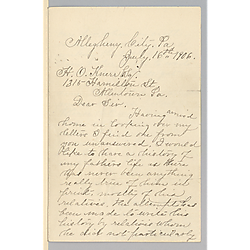 Allegheny, City, Pa
July, 18th 1906.
H. O.
1315 Hamilton St.
Allentown Pa.
Dear Sir.
Having arrived
home in looking over my
letters I find one from
you unanswered. I would
like to have a history of
my fathers life as there
has never been anything
really true of him in
print mostly of his
relatives. An attempt has
been made to write this
history by relatives whom
he did not particularly